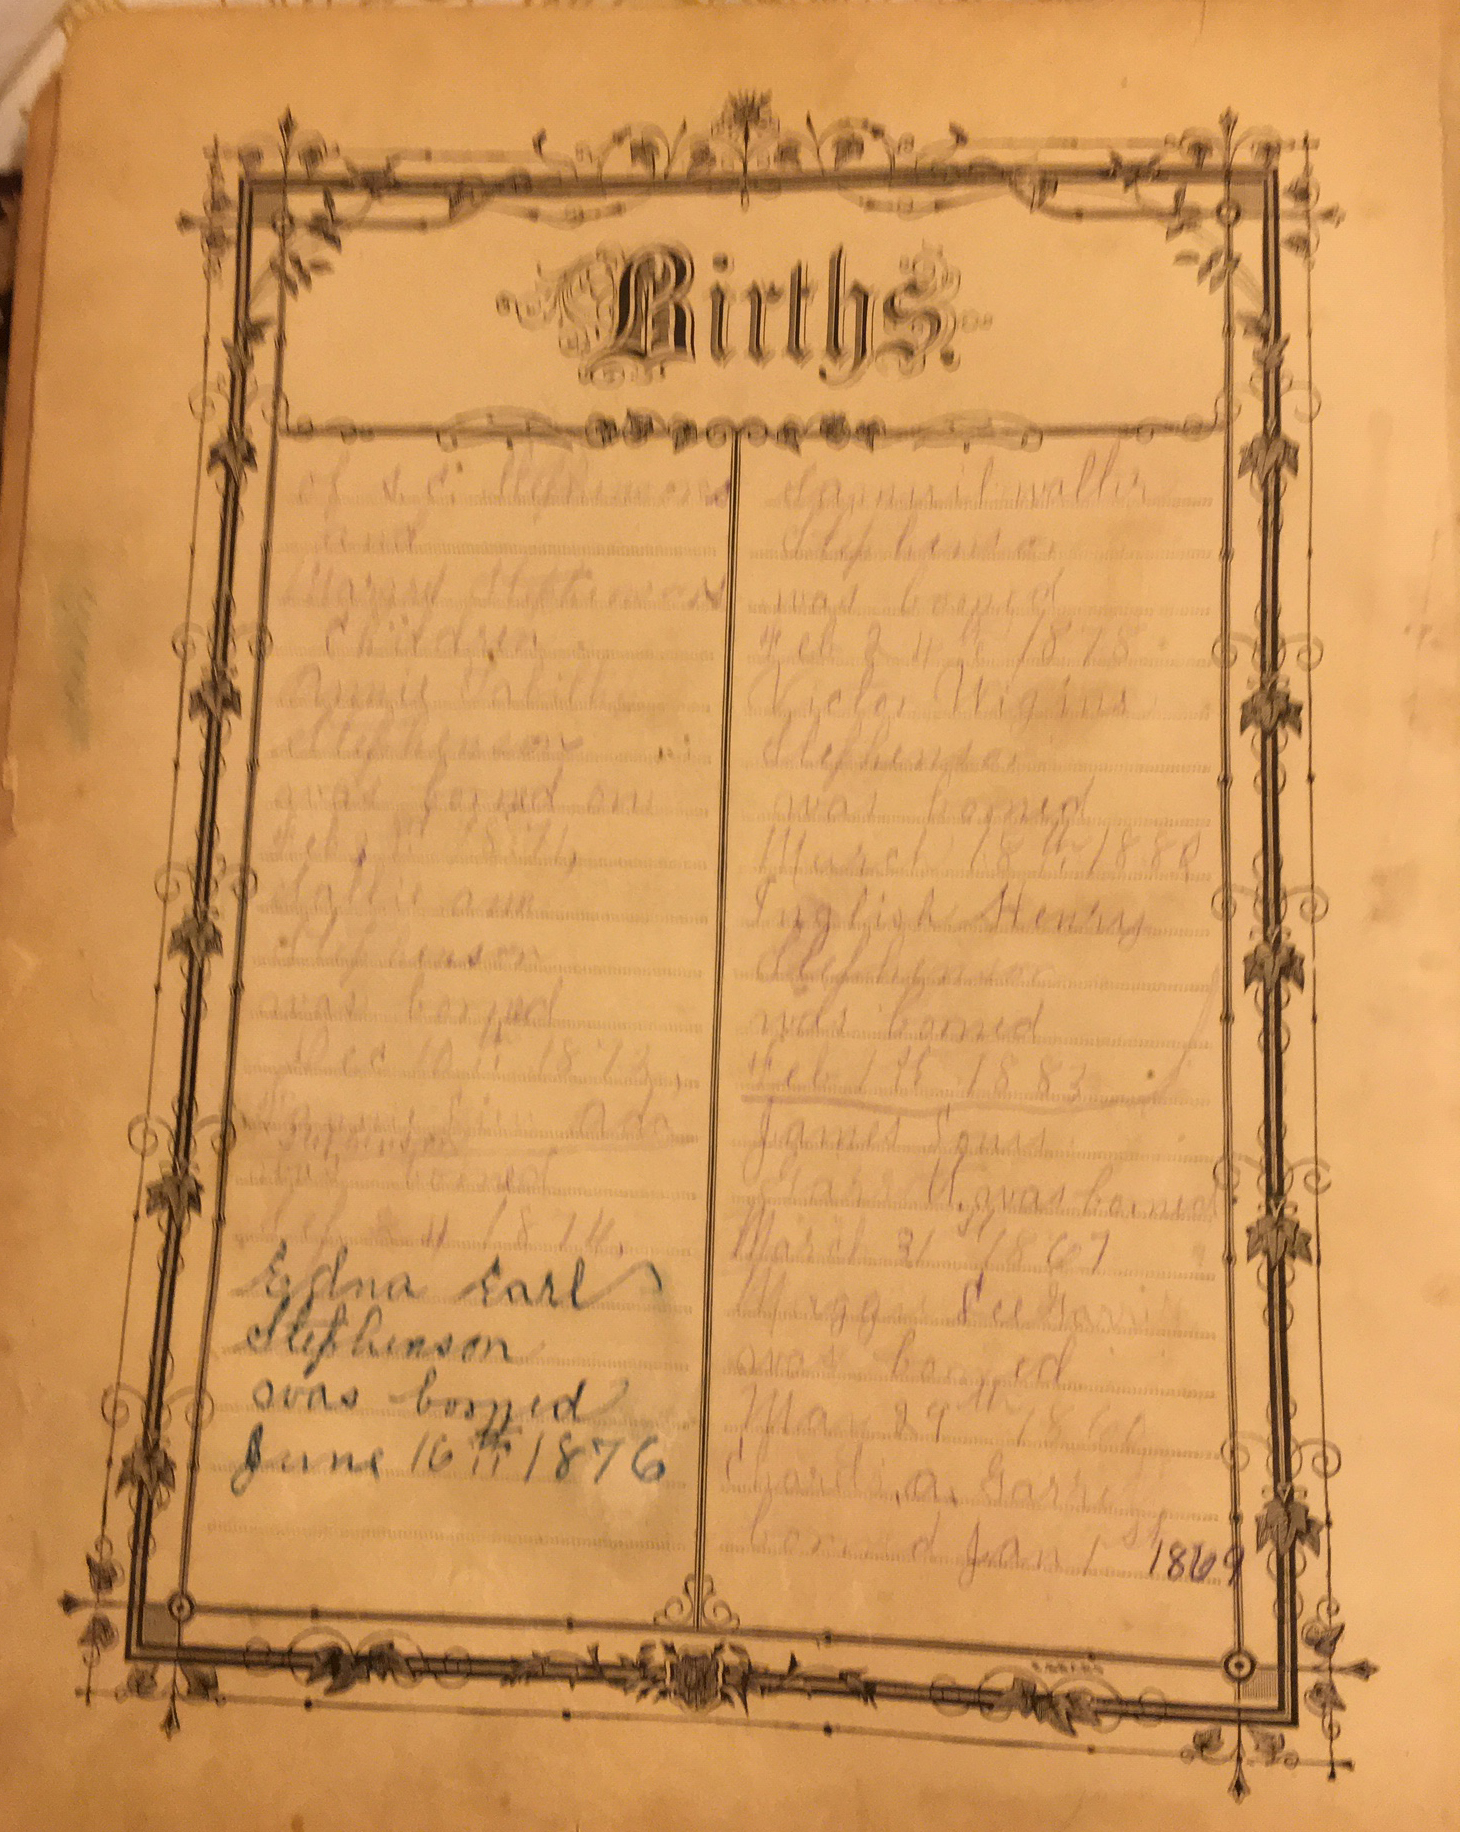 Births.
of S. C. Stephensons
and
Stephensons
Children
Annie Tabitha
Stephenson
was borned on
Feb. 1871,
Sallie ann
Stephenson
was borned
Dec 10th 1872,
Ada
Stephenson
was borned
1874,
Edna Earl
Stephenson
was borned
June 16th 1876
Samuil waller
Stephenson
was borned
Feb 24th 1878
Victor Wigins
Stephenson
was borned
March 18th 1880
Inglish Henry
Stephenson
was borned
Feb 1st 1883
James Louis
Garrett was borned
March 31st 1867
Maggie Lee Garrett
was borned
29th
Charlie a. Garrett
borned Jan 1st 1869